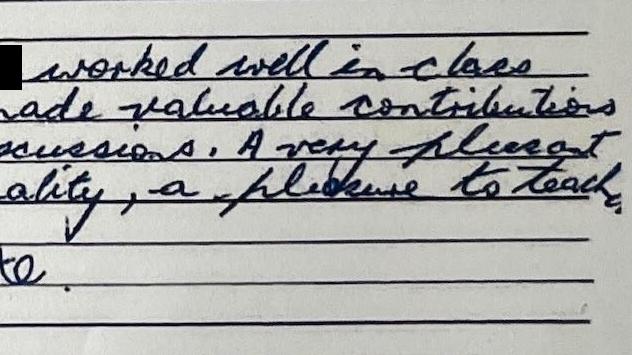 worked well in class
ade valuable contributions
scussions. A very pleasant
ality, a pleasure to teach.
te.